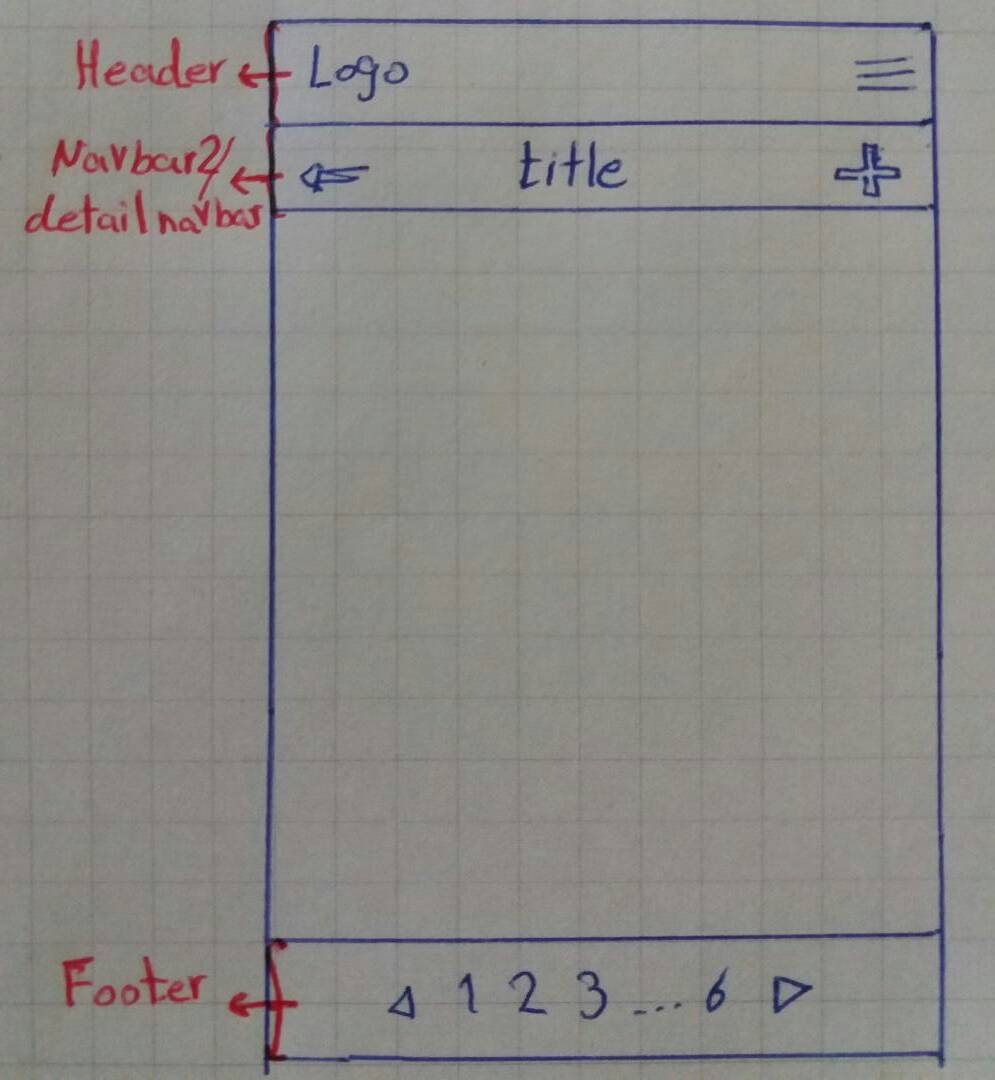 Header
Logo
Navbar2/
detail navbar
title
Footer
1 2 3 ... 6